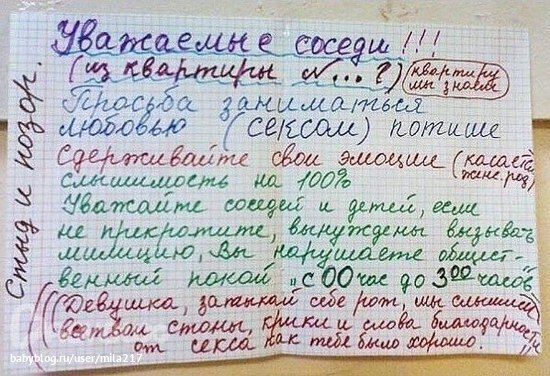 Стыд и позор.
Уважаемые соседи!!!
(из квартиры №...?) (квартиру мы знаем)
Просьба заниматься
любовью (сексом) потише
Сдерживайте свои эмоции (касается женс. род)
слышимость на 100%
Уважайте соседей и детей, если
не прекратите, вынуждены вызывать
милицию, Вы нарушаете общест-
венный покой "с 00 час до 3 00 часов"
((Девушка, затыкай себе рот, мы слышим
все твои стоны, крики и слова благодарности
от секса как тебе было хорошо.))
babyblog.ru/user/mila217